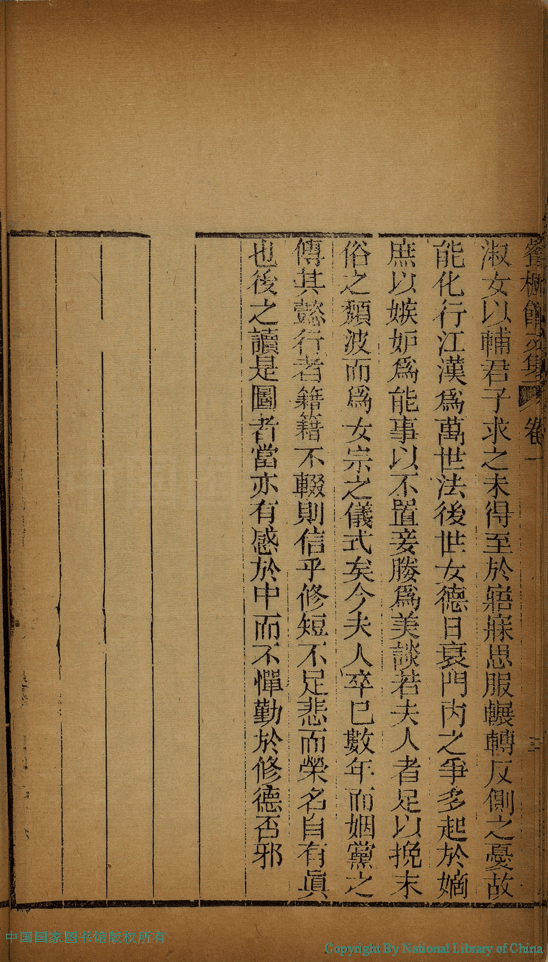 養桐館文集 卷一
淑女以輔君子求之未得至於寤寐思服輾轉反側之憂故
能化行江漢爲萬世法後世女德日衰門內之爭多起於嫡
庶以嫉妒爲能事以不置妾媵爲美談若夫人者足以挽末
俗之頹波而爲女宗之儀式矣今夫人卒已數年而姻黨之
傳其懿行者籍籍不輟則信乎修短不足悲而榮名自有眞
也後之讀是圖者當亦有感於中而不憚勤於修德否邪
中国国家图书馆版权所有
Copyright By National Library of China